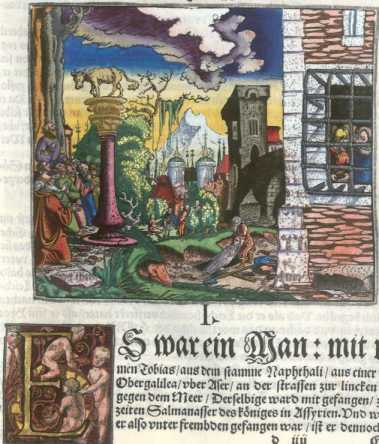 I.
ES war ein Man : mit
men Tobias/ aus dem stamme Naphthali/ aus einer
Obergalilea/ vber Aser/ an der strassen zur lincken
gegen dem Meer/ Derselbige ward mit gefangen/
zeiten Salmanasser des Königes in Assyrien. Vnd w
er also vnter frembden gefangen war/ ist er dennoch